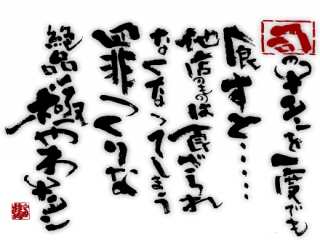 司のタンを一度でも
食すと……
他店のものは食べられ
なくなってしまう
罪つくりな
絶品極やわタン